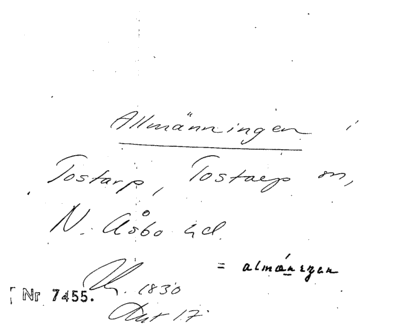 Allmänningen i
Tostarp, Tostarp sn,
N. Åsbo hd.
= almä́nıŋen
1830
Nr 7455.
Akt 17